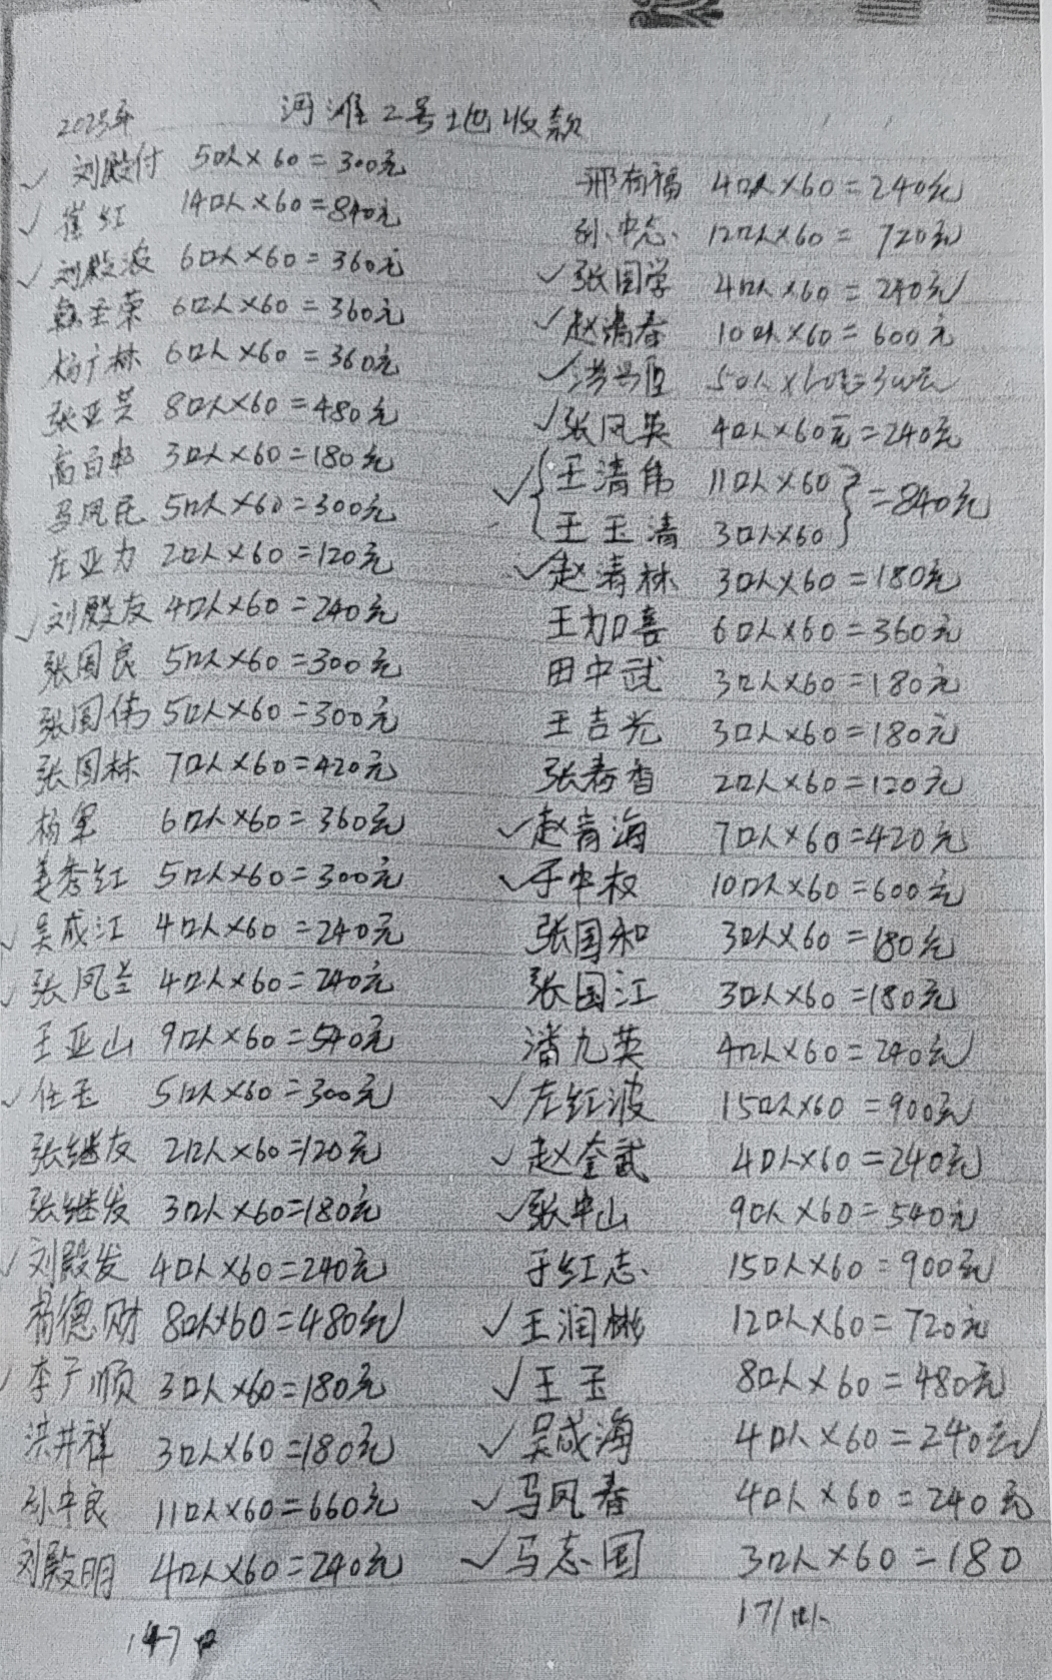 2023年
河滩2号地收款
刘殿付 5口人×60=300元
崔红 14口人×60=840元
刘殿波 6口人×60=360元
圣荣 6口人×60=360元
杨广林 6口人×60=360元
张亚芳 8口人×60=480元
高百 3口人×60=180元
马凤民 5口人×60=300元
左亚力 2口人×60=120元
刘殿友 4口人×60=240元
张国良 5口人×60=300元
张国伟 5口人×60=300元
张国林 7口人×60=420元
杨军 6口人×60=360元
姜秀红 5口人×60=300元
吴成江 4口人×60=240元
张凤兰 4口人×60=240元
王亚山 9口人×60=540元
任玉 5口人×60=300元
张继友 2口人×60=120元
张继发 3口人×60=180元
刘殿发 4口人×60=240元
德财 8口人×60=480元
李广顺 3口人×60=180元
洪井祥 3口人×60=180元
孙中良 11口人×60=660元
刘殿明 4口人×60=240元
147口
邢有福 4口人×60=240元
孙中志 12口人×60=720元
张国学 4口人×60=240元
赵满春 10口人×60=600元
洪兴 5口人×60=300元
张凤英 4口人×60元=240元
王清伟 11口人×60
王玉清 3口人×60
=840元
赵清林 3口人×60=180元
王加喜 6口人×60=360元
田中武 3口人×60=180元
王吉光 3口人×60=180元
张春香 2口人×60=120元
赵青海 7口人×60=420元
于中权 10口人×60=600元
张国和 3口人×60=180元
张国江 3口人×60=180元
潘九英 4口人×60=240元
左红波 15口人×60=900元
赵奎武 4口人×60=240元
张中山 9口人×60=540元
于红志 15口人×60=900元
王润彬 12口人×60=720元
王玉 8口人×60=480元
吴成海 4口人×60=240元
马凤春 4口人×60=240元
马志国 3口人×60=180
171口